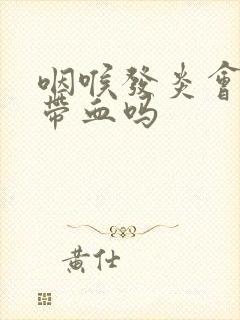 咽喉發炎會
帶血嗎
黃仕